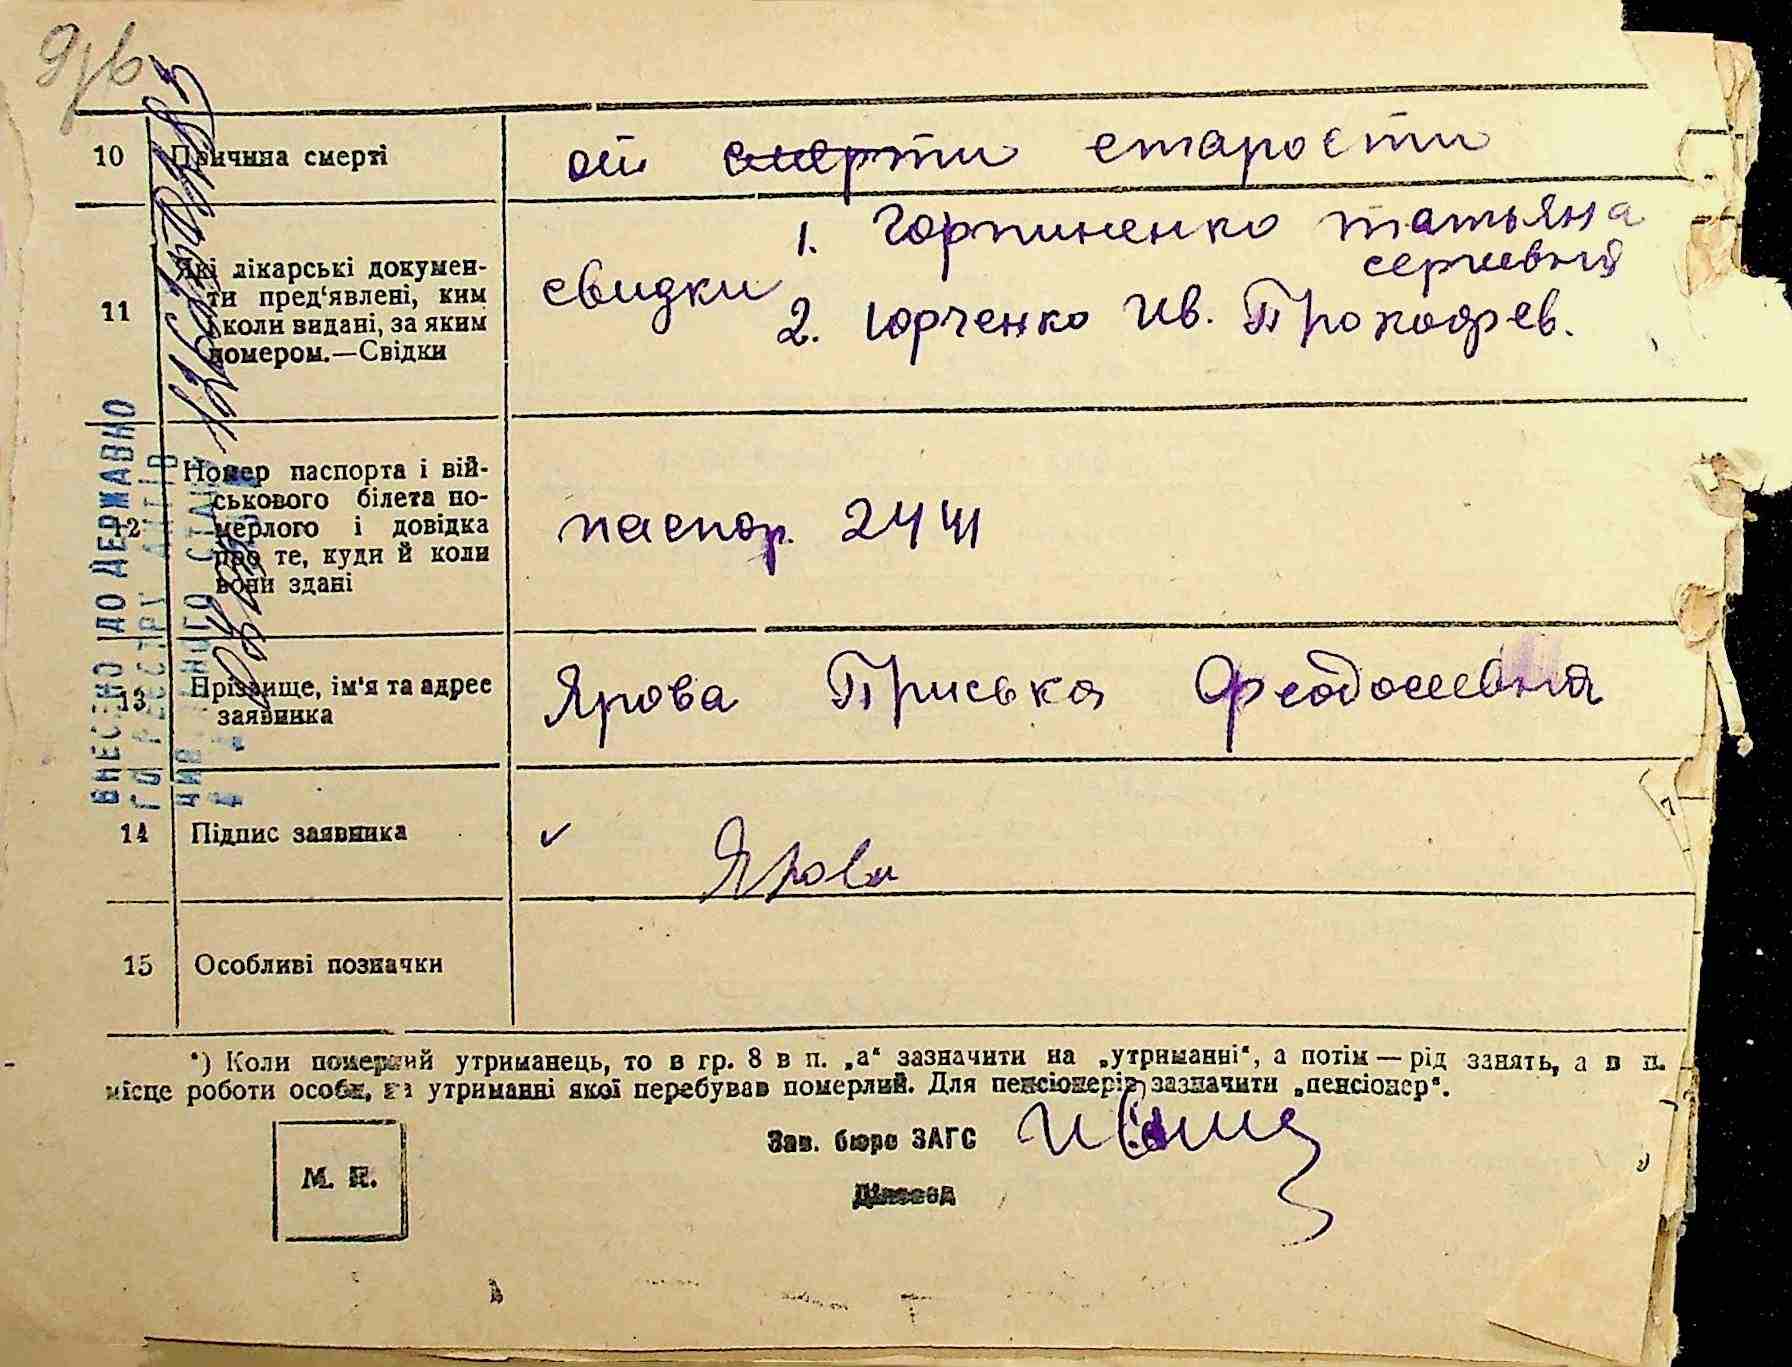 10 Причина смерті
от смерти старости
11 Які лікарські докумен-
ти пред'явлені, ким
і коли видані, за яким
номером.—Свідки
свидки
1. Горпиненко Татьяна
сергиевня
2. Юрченко Ив. Прокофев.
12 Номер паспорта і вій-
ськового білета по-
мерлого і довідка
про те, куди й коли
вони здані
паспор. 24
13 Прізвище, ім'я та адрес
заявника
Ярова Приська Феодосиевня
14 Підпис заявника
✓ Ярова
15 Особливі позначки
*) Коли померлий утриманець, то в гр. 8 в п. „а" зазначити на „утриманні", а потім — рід занять, а в п.
місце роботи особи, на утриманні якої перебував померлий. Для пенсіонерів зазначити „пенсіонер".
М. П.
Зав. бюро ЗАГС
Діловод
ВНЕСЕНО ДО ДЕРЖАВНО
ГО РЕЄСТРУ АКТІВ
ЦИВІЛЬНОГО СТАНУ